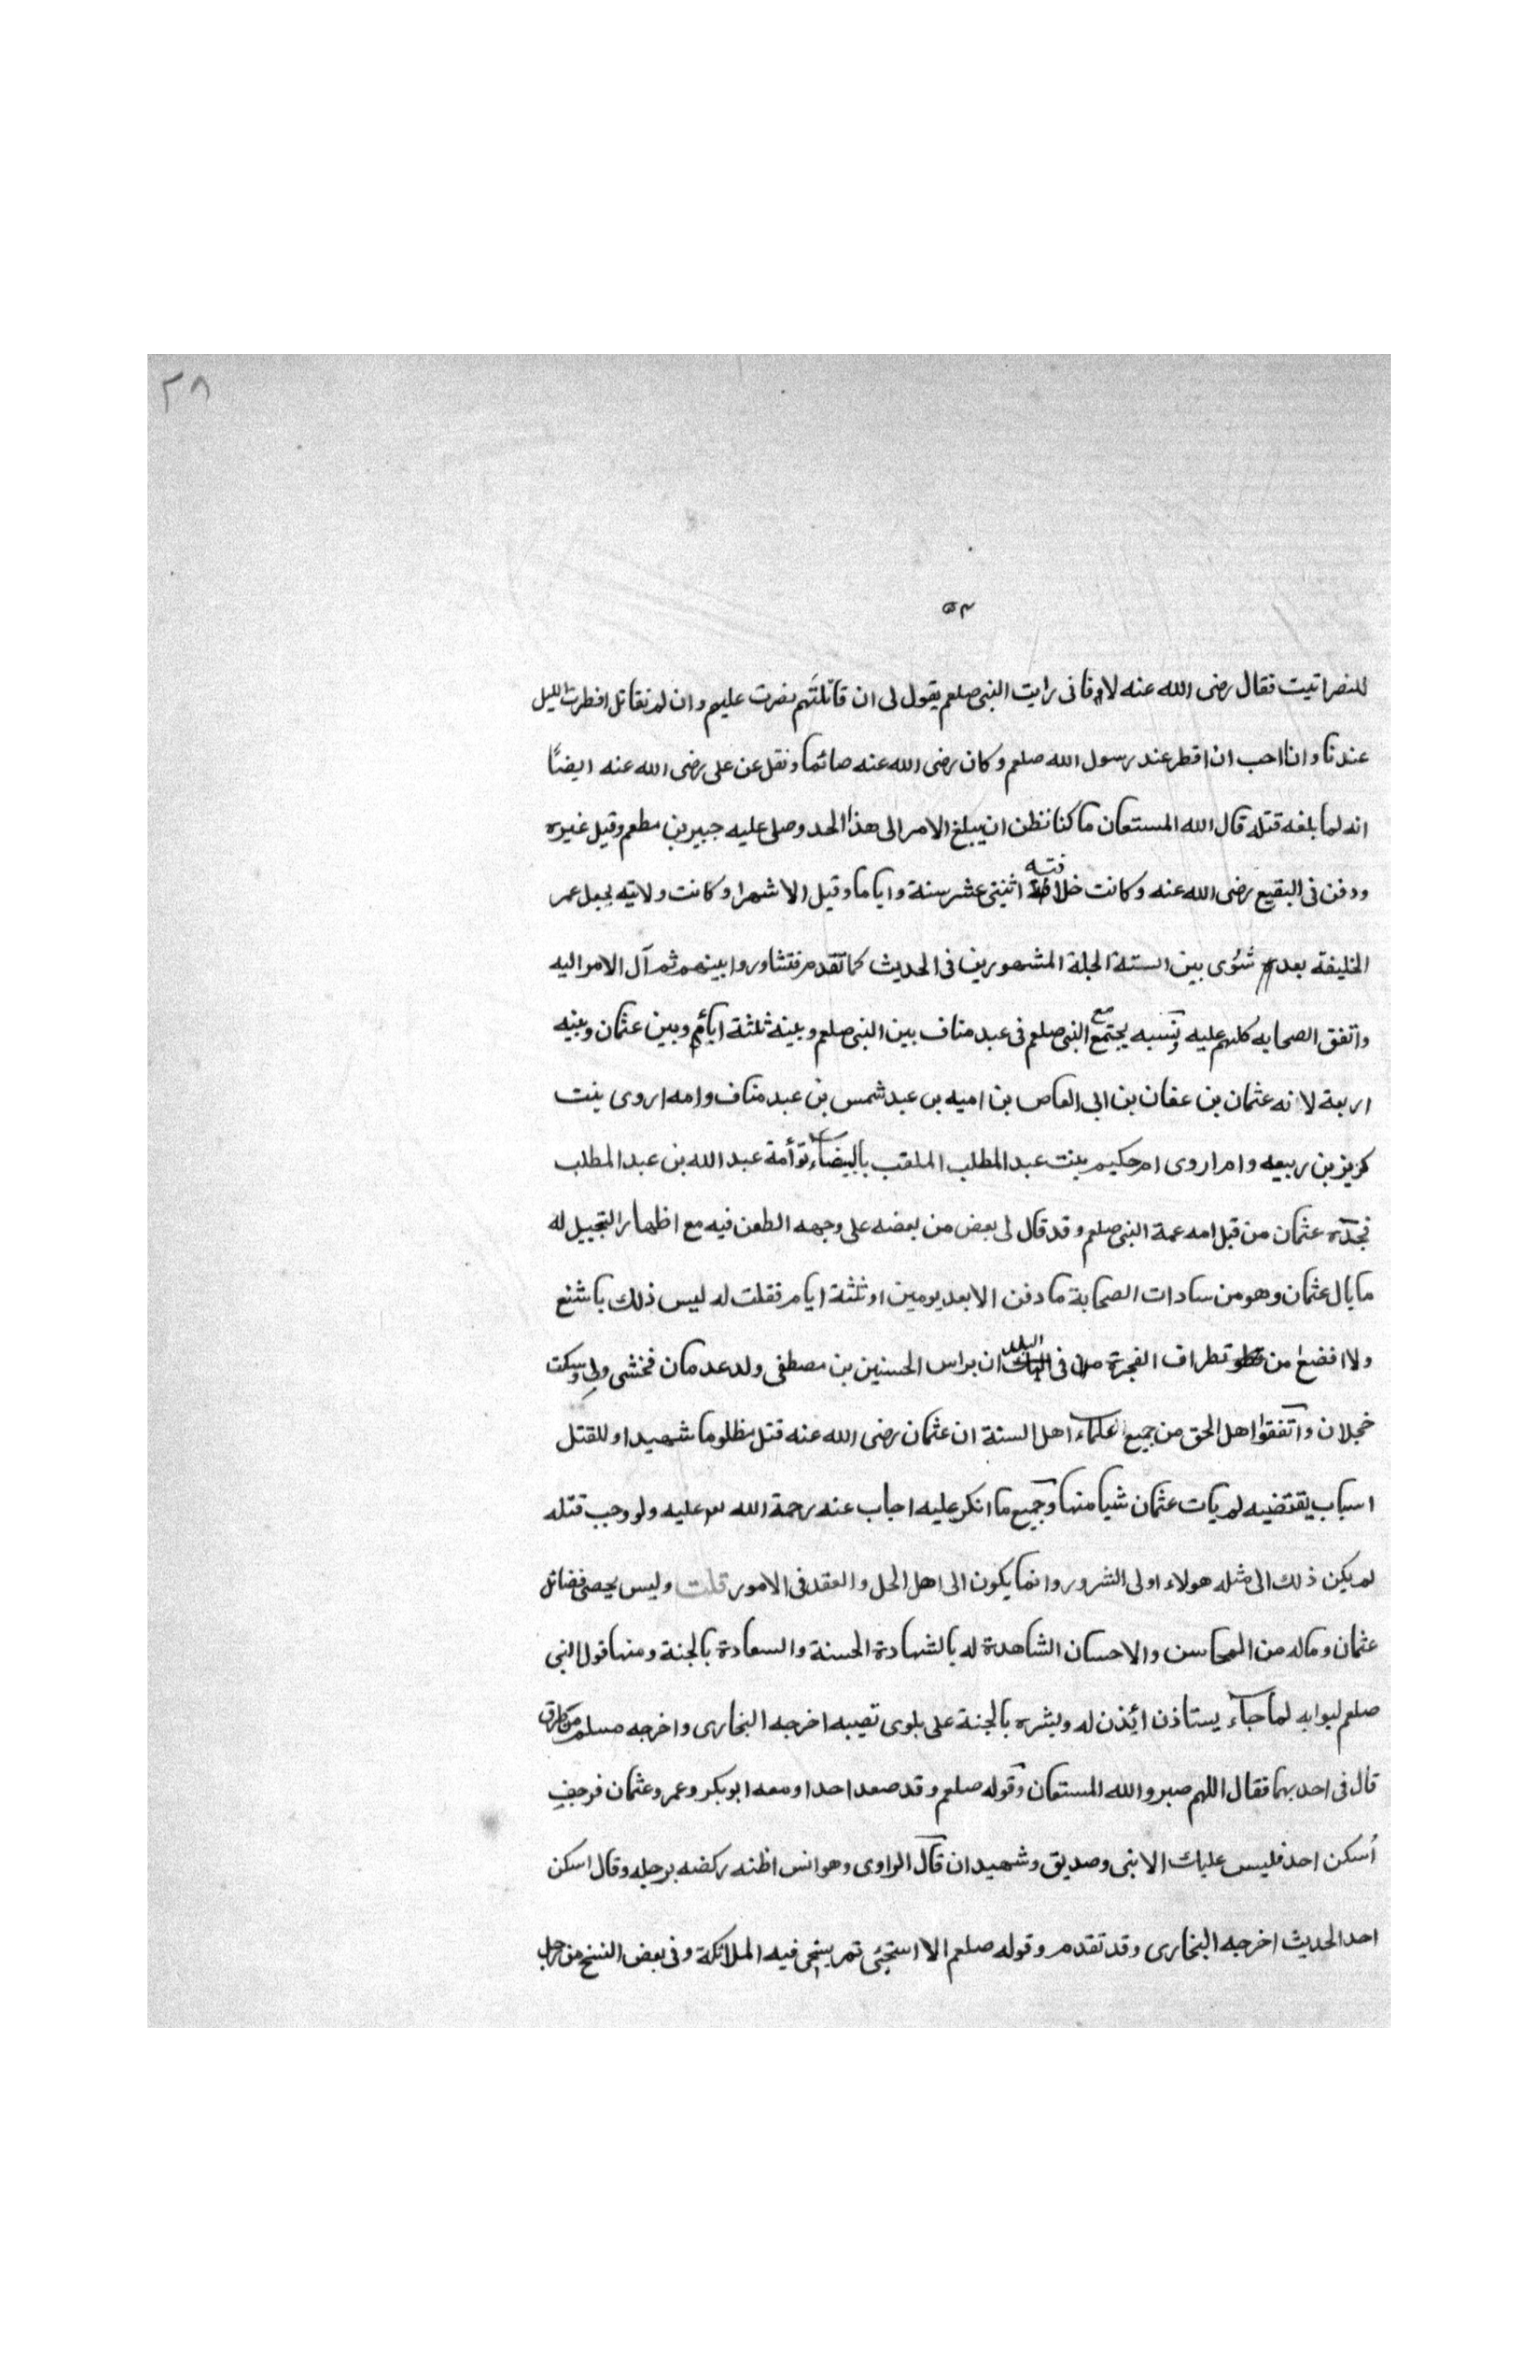 ٢٨
٥٣
للنصر اتيت فقال رضى الله عنه لا فانى رايت النبى صلعم يقول لى ان قاتلتهم نصرت عليهم وان لم تقاتل افطرت الليل
عندنا وانا احب ان افطر عند رسول الله صلعم وكان رضى الله عنه صائما ونقل عن على رضى الله عنه ايضًا
انه لما بلغه قتله قال الله المستعان ما كنا نظن ان يبلغ الامر الى هذا الحد وصلى عليه جبير بن مطعم وقيل غيره
ودفن فى البقيع رضى الله عنه وكانت خلافته اثنى عشر سنة واياما وقيل الا شهرا وكانت ولايته بجعل عمر
الخليفة بعده شورى بين الستة الجلة المشهورين فى الحديث كما تقدم فتشاوروا بينهم ثم آل الامر اليه
واتفق الصحابه كلهم عليه ونسبه يجتمع مع النبى صلعم فى عبد مناف بين النبى صلعم وبينه ثلثة وبين عثمان وبينه
اربعة لانه عثمان بن عفان بن ابى العاص بن اميه بن عبد شمس بن عبد مناف وامه اروى بنت
كريز بن ربيعه وام اروى ام حكيم بنت عبد المطلب الملقب بالبيضاء توأمة عبد الله بن عبد المطلب
فجدّة عثمان من قبل امه عمة النبى صلعم وقد قال لى بعض من بعضه على وجهه الطعن فيه مع اظهار التبجيل له
ما بال عثمان وهو من سادات الصحابة ما دفن الا بعد يومين او ثلثة ايام فقلت له ليس ذلك باشنع
ولا افضع من تطراف الفجرة فى البلدان براس الحسنين بن مصطفى ولد عدمان فخشى ولى وسكت
خجلان واتفقوا اهل الحق من جميع علماء اهل السنة ان عثمان رضى الله عنه قتل مظلوما شهيدا وللقتل
اسباب يقتضيه لم يات عثمان شيا منها وجميع ما انكر عليه اجاب عنه رحمة الله عليه ولو وجب قتله
لم يكن ذلك الى مثله هولاء اولى الشرور وانما يكون الى اهل الحل والعقد فى الامور قلت وليس يحصى فضائل
عثمان وماله من المحاسن والاحسان الشاهدة له بالشهادة الحسنة والسعادة بالجنة ومنها قول النبى
صلعم لبوابه لما جاء يستاذن ائذن له وبشره بالجنة على بلوى تصيبه اخرجه البخارى واخرجه مسلم من طرق
قال فى احديهما فقال اللهم صبر والله المستعان وقوله صلعم وقد صعد احدا ومعه ابوبكر وعمر وعثمان فرجف
أسكن احد فليس عليك الا نبى وصديق وشهيدان قال الراوى وهو انس اظنه ركضه برجله وقال اسكن
احد الحديث اخرجه البخارى وقد تقدم وقوله صلعم الا استحيى فيه الملائكة وفى بعض النسخ من رجل